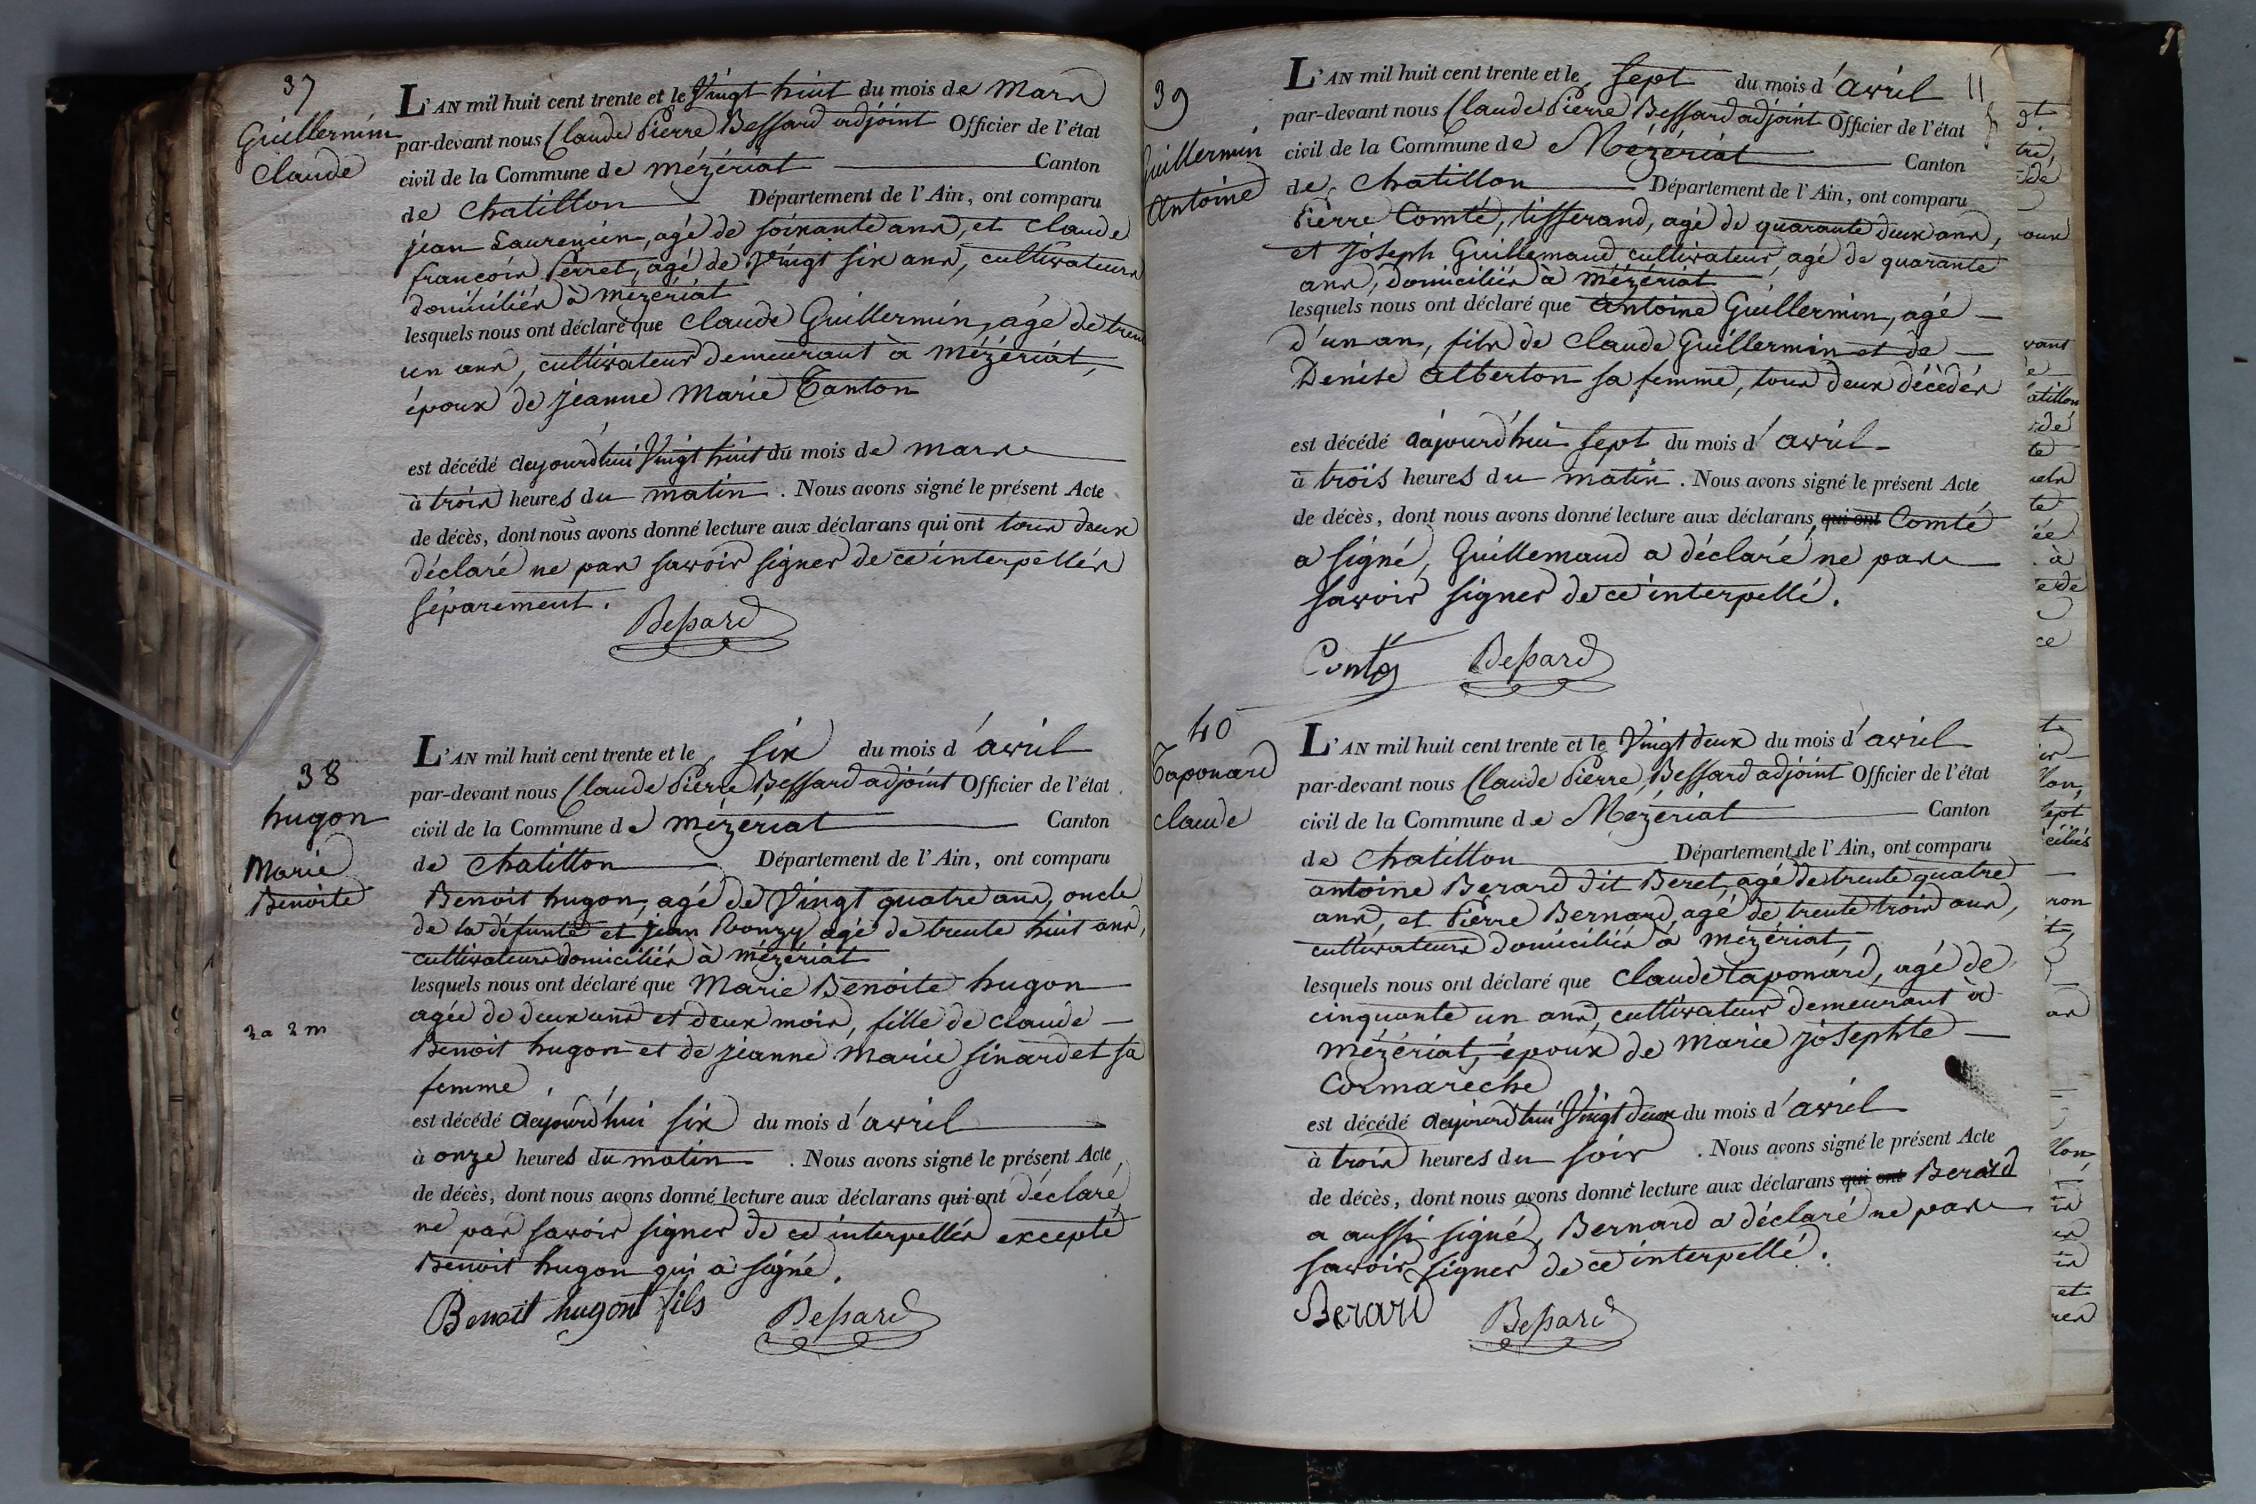 37
Guillermin
Claude
L'AN mil huit cent trente et le Vingt huit du mois de mars
par-devant nous Claude Pierre Bessard adjoint Officier de l'état
civil de la Commune de mézériat Canton
de Chatillon Département de l'Ain, ont comparu
jean Laurencin, agé de soixante ans, et Claude
françois Perret, agé de Vingt six ans, cultivateurs
domiciliés à mézériat
lesquels nous ont déclaré que Claude Guillermin, agé de trente
un ans, cultivateur demeurant à Mézériat,
époux de jeanne Marie Tanton
est décédé aujourd'hui Vingt huit du mois de mars
à trois heures du matin. Nous avons signé le présent Acte
de décès, dont nous avons donné lecture aux déclarans qui ont tous deux
déclaré ne pas savoir signer de ce interpellés
séparement.
Bessard
38
hugon
Marie
Benoite
2 a 2 m
L'AN mil huit cent trente et le six du mois d'avril
par-devant nous Claude Pierre Bessard adjoint Officier de l'état
civil de la Commune de mézériat Canton
de Chatillon Département de l'Ain, ont comparu
Benoit hugon, agé de Vingt quatre ans, oncle
de la défunte et jean Ronzy agé de trente huit ans,
cultivateurs domiciliés à mézériat
lesquels nous ont déclaré que Marie Benoite hugon
agée de deux ans et deux mois, fille de Claude
Benoit hugon et de jeanne Marie sinardet sa
femme,
est décédé aujourd'hui six du mois d'avril
à onze heures du matin. Nous avons signé le présent Acte
de décès, dont nous avons donné lecture aux déclarans qui ont déclaré
ne pas savoir signer de ce interpellés excepté
Benoit hugon qui a signé.
Benoit hugont fils Bessard
39
Guillermin
Antoine
11
L'AN mil huit cent trente et le sept du mois d'avril
par-devant nous Claude Pierre Bessard adjoint Officier de l'état
civil de la Commune de Mézériat Canton
de Chatillon Département de l'Ain, ont comparu
Pierre Comté, tisserand, agé de quarante deux ans,
et joseph Guillemaud cultivateur, agé de quarante
ans, domiciliés à mézériat
lesquels nous ont déclaré que antoine Guillermin, agé
d'un an, fils de Claude Guillermin et de
Denise Alberton sa femme, tous deux décédés
est décédé aujourd'hui sept du mois d'avril
à trois heures du matin. Nous avons signé le présent Acte
de décès, dont nous avons donné lecture aux déclarans, qui ont Comté
a signé, Guillemaud a déclaré ne pas
savoir signer de ce interpellé.
Conté Bessard
40
Taponard
Claude
L'AN mil huit cent trente et le Vingt deux du mois d'avril
par-devant nous Claude Pierre Bessard adjoint Officier de l'état
civil de la Commune de Mézériat Canton
de Chatillon Département de l'Ain, ont comparu
antoine Berard dit Beret, agé de trente quatre
ans, et Pierre Bernard, agé de trente trois ans,
cultivateurs domiciliés à mézériat,
lesquels nous ont déclaré que Claude taponard, agé de
cinquante un ans, cultivateur demeurant à
mézériat, époux de Marie josephte
Cormarèche
est décédé aujourd'hui Vingt deux du mois d'avril
à trois heures du soir. Nous avons signé le présent Acte
de décès, dont nous avons donné lecture aux déclarans qui ont Berard
a aussi signé, Bernard a déclaré ne pas
savoir signer de ce interpellé.
Berard Bessard